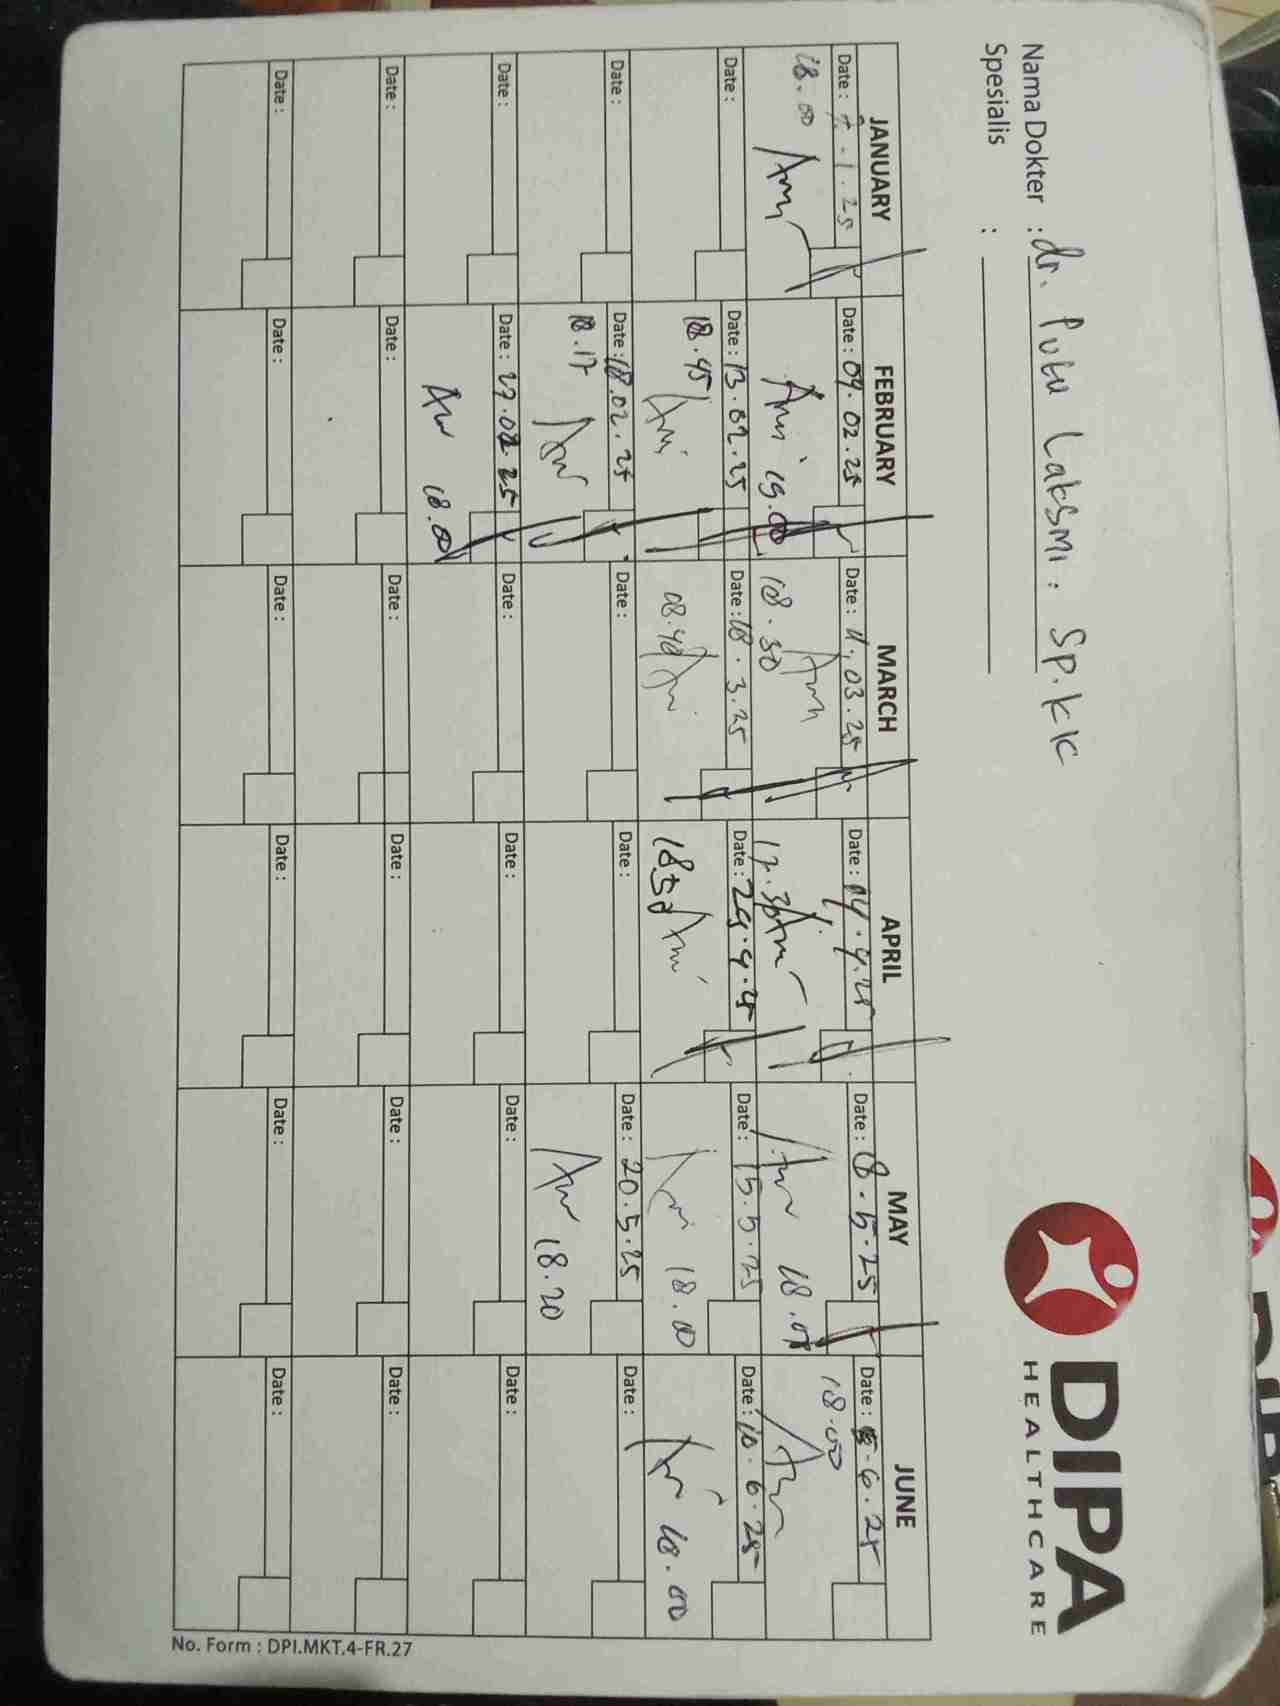 Nama Dokter : dr. Putu Laksmi . Sp.KK
Spesialis :
DIPA
HEALTHCARE
JANUARY FEBRUARY MARCH APRIL MAY JUNE
Date : .1.25 Date : 04.02.25 Date : 11.03.25 Date : 04.4.25 Date : 8.5.25 Date : .6.25
18.00 19.00 18.30 17.30 18.00
Date : Date : 13.02.25 Date : 18.3.25 Date : 29.4.25 Date : 15.5.25 Date : 10.6.25
18.45 08.40 18.50 18.00 18.00
Date : Date : 18.02.25 Date : Date : Date : 20.5.25 Date :
18.17 18.20
Date : Date : 27.02.25 Date : Date : Date : Date :
18.00
Date : Date : Date : Date : Date : Date :
Date : Date : Date : Date : Date : Date :
No. Form : DPI.MKT.4-FR.27